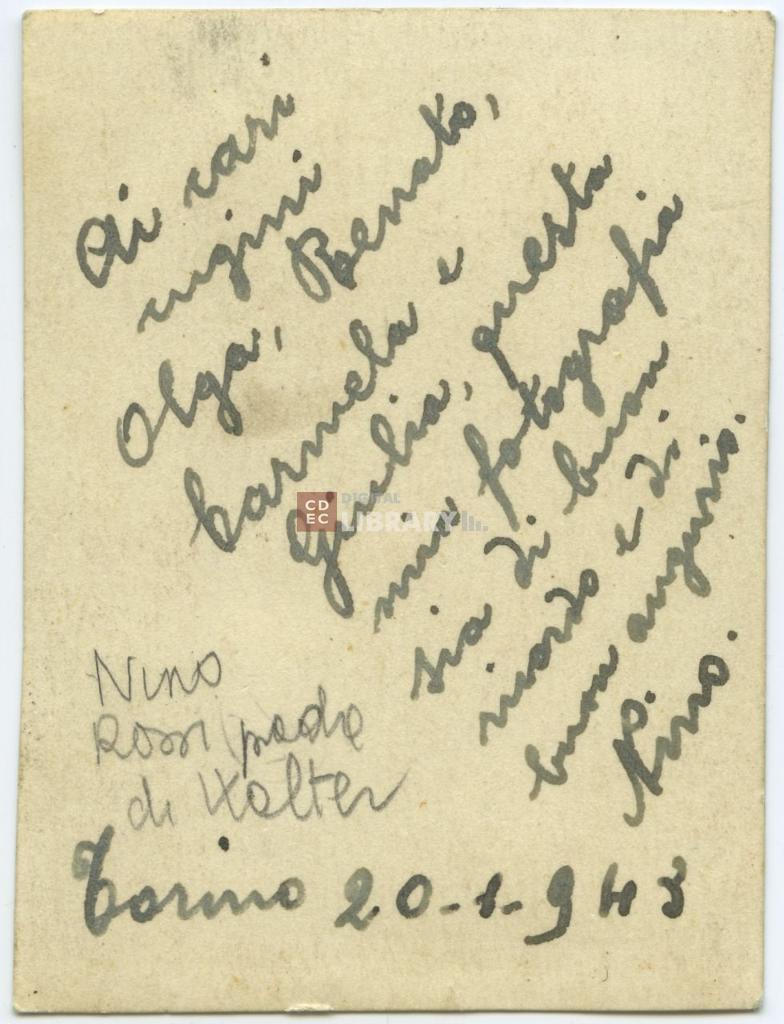 Ai cari
cugini
Olga, Renato,
Carmela e
Giulia, questa
mia fotografia
sia di buon
ricordo e di
buon augurio.
Nino.
Nino
Rossi padre
di Walter
Torino 20-1-943
CDEC DIGITAL LIBRARY